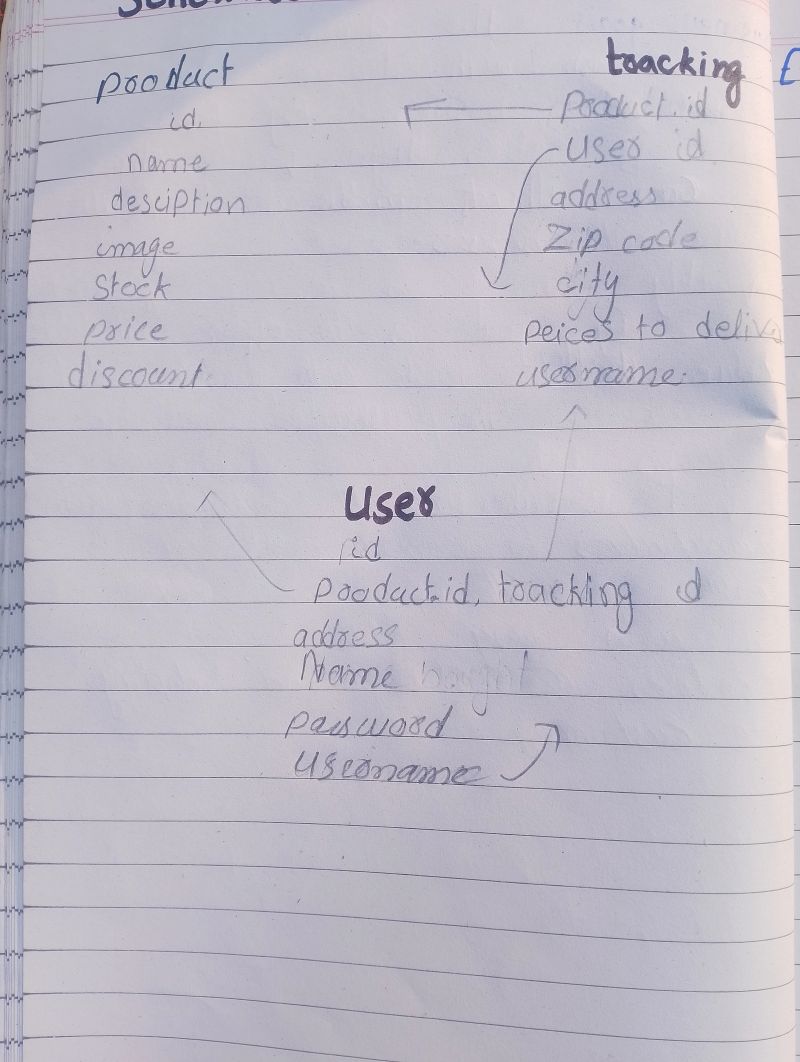 product
id
name
desciption
image
Stock
price
discount
tracking
Product id
User id
address
Zip code
city
peices to deliv
username
User
id
Product id, tracking id
address
Name
password
username